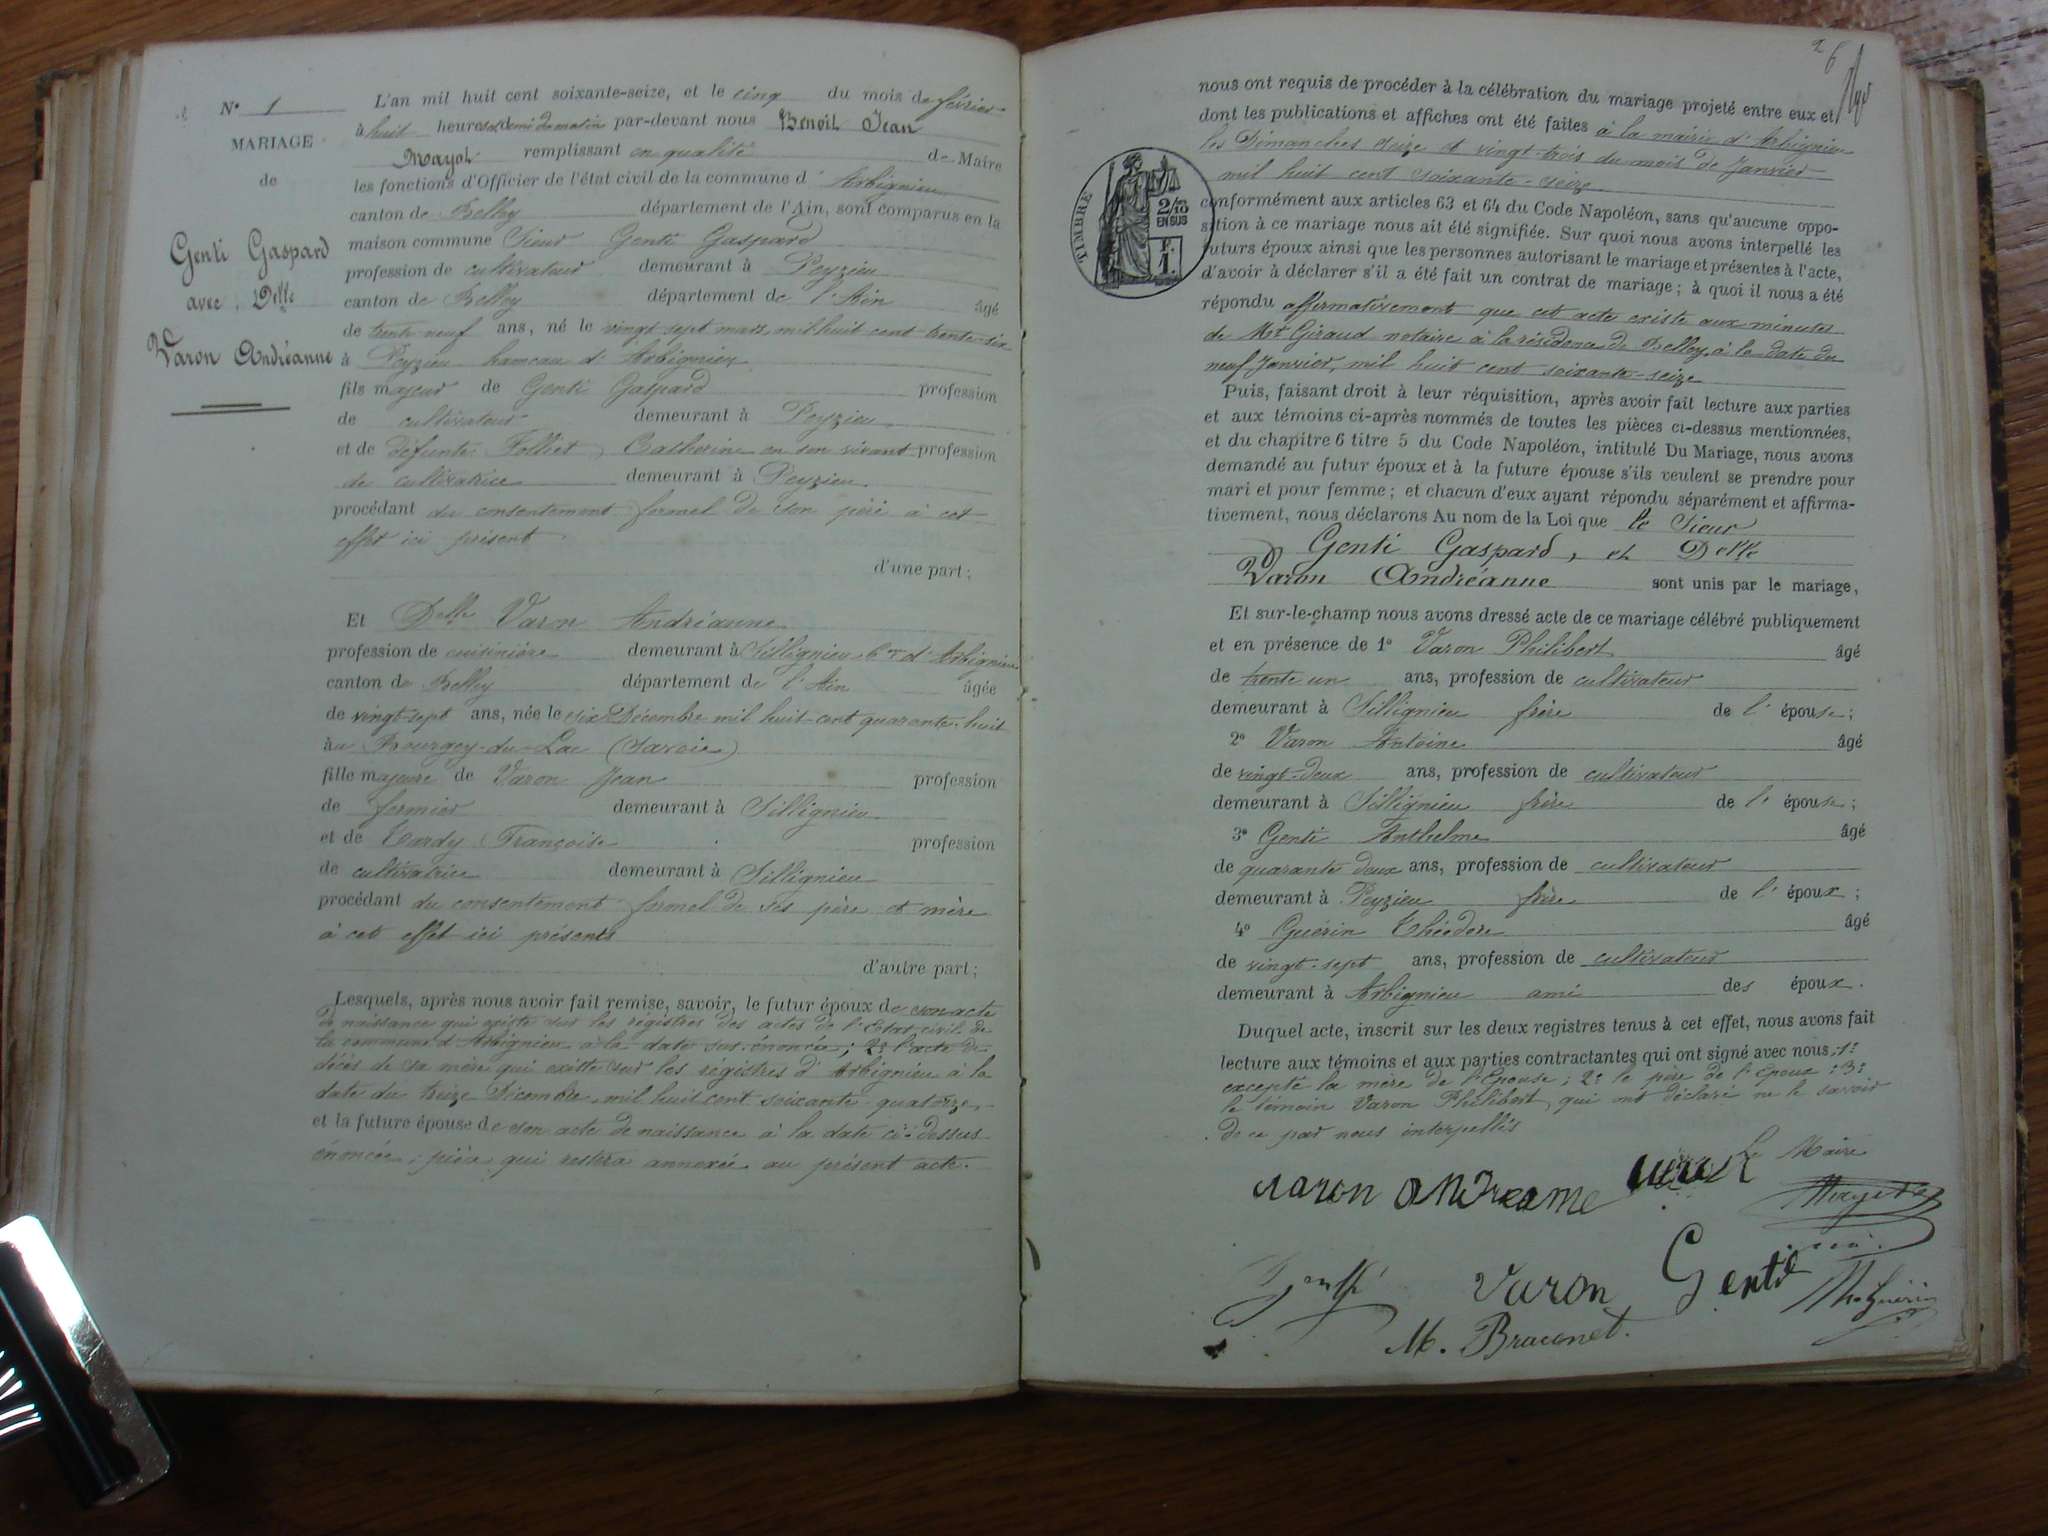 N° 1
MARIAGE
de
Genti Gaspard
avec Delle
Varon Andréanne
L'an mil huit cent soixante-seize, et le cinq du mois de février
à huit heures et demi du matin par-devant nous Benoit Jean
Mayot remplissant en qualité de Maire
les fonctions d'Officier de l'état civil de la commune d' Arbignieu
canton de Belley département de l'Ain, sont comparus en la
maison commune Sieur Genti Gaspard
profession de cultivateur demeurant à Peyzieu
canton de Belley département de l'Ain âgé
de trente neuf ans, né le vingt sept mars mil huit cent trente-six
à Peyzieu hameau d'Arbignieu
fils majeur de Genti Gaspard profession
de cultivateur demeurant à Peyzieu
et de défunte Folliet, Catherine en son vivant profession
de cultivatrice demeurant à Peyzieu
procédant du consentement formel de son père à cet
effet ici présent
d'une part;
Et Delle Varon Andréanne
profession de cuisinière demeurant à Sillignieu Cne d'Arbignieu
canton de Belley département de l'Ain âgée
de vingt-sept ans, née le six Décembre mil huit-cent quarante-huit
à u Bourget-du-Lac (Savoie)
fille majeure de Varon Jean profession
de fermier demeurant à Sillignieu
et de Tardy Françoise profession
de cultivatrice demeurant à Sillignieu
procédant du consentement formel de ses père et mère
à cet effet ici présents
d'autre part;
Lesquels, après nous avoir fait remise, savoir, le futur époux de son acte
de naissance qui existe sur les régistres des actes de l'Etat civil de
la commune d'Arbignieu à la date sus-énoncée; 2° l'acte de
décès de sa mère qui existe sur les régistres d'Arbignieu à la
date du treize Décembre mil huit cent soixante-quatorze,
et la future épouse de son acte de naissance à la date ci-dessus
énoncée, pièce qui restera annexée au présent acte.
26
nous ont requis de procéder à la célébration du mariage projeté entre eux et
dont les publications et affiches ont été faites à la mairie d'Arbignieu
les Dimanches seize et vingt-trois du mois de Janvier
mil huit cent soixante-seize
TIMBRE
2/10
EN SUS
1 F.
conformément aux articles 63 et 64 du Code Napoléon, sans qu'aucune oppo-
sition à ce mariage nous ait été signifiée. Sur quoi nous avons interpellé les
futurs époux ainsi que les personnes autorisant le mariage et présentes à l'acte,
d'avoir à déclarer s'il a été fait un contrat de mariage; à quoi il nous a été
répondu affirmativement que cet acte existe aux minutes
de Mre Giraud notaire à la résidence de Belley, à la date du
neuf Janvier, mil huit cent soixante-seize
Puis, faisant droit à leur réquisition, après avoir fait lecture aux parties
et aux témoins ci-après nommés de toutes les pièces ci-dessus mentionnées,
et du chapitre 6 titre 5 du Code Napoléon, intitulé Du Mariage, nous avons
demandé au futur époux et à la future épouse s'ils veulent se prendre pour
mari et pour femme; et chacun d'eux ayant répondu séparément et affirma-
tivement, nous déclarons Au nom de la Loi que le Sieur
Genti Gaspard, et Delle
Varon Andréanne sont unis par le mariage,
Et sur-le-champ nous avons dressé acte de ce mariage célébré publiquement
et en présence de 1° Varon Philibert âgé
de trente un ans, profession de cultivateur
demeurant à Sillignieu frère de l' épouse;
2° Varon Antoine âgé
de vingt-deux ans, profession de cultivateur
demeurant à Sillignieu frère de l' épouse;
3° Genti Anthelme âgé
de quarante deux ans, profession de cultivateur
demeurant à Peyzieu frère de l' époux;
4° Guérin Théodore âgé
de vingt-sept ans, profession de cultivateur
demeurant à Arbignieu ami des époux.
Duquel acte, inscrit sur les deux registres tenus à cet effet, nous avons fait
lecture aux témoins et aux parties contractantes qui ont signé avec nous, 1°
excepté la mère de l'Epouse; 2° le père de l'époux; 3°
le témoin Varon Philibert, qui ont déclaré ne le savoir
de ce par nous interpellés
Le Maire
varon andreanne
Mayot
Varon Genti
Th Guérin
M. Braconet.